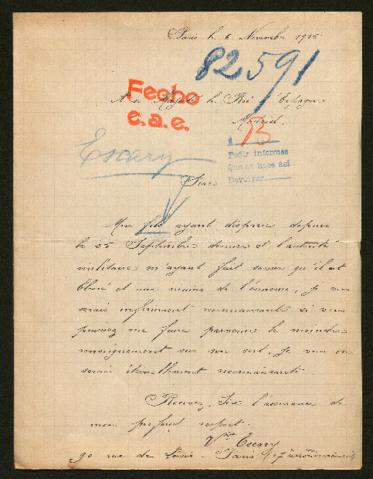 Paris le 6 Novembre 1915
82591
A sa Majesté le Roi d'Espagne
Fecho
e.a.e.
Madrid.
B
Pedir informes
que se hace así
Devolver
Escary
Sire
Mon fils ayant disparu depuis
le 25 Septembre dernier et l'autorité
militaire m'ayant fait savoir qu'il est
blessé et aux mains de l'ennemi, je vous
serais infiniment reconnaissante si vous
pouviez me faire parvenir le moindre
renseignement sur son sort. je vous en
serai éternellement reconnaissante.
Recevez, Sire l'assurance de
mon profond respect.
Vve Escary
90 rue de
Paris